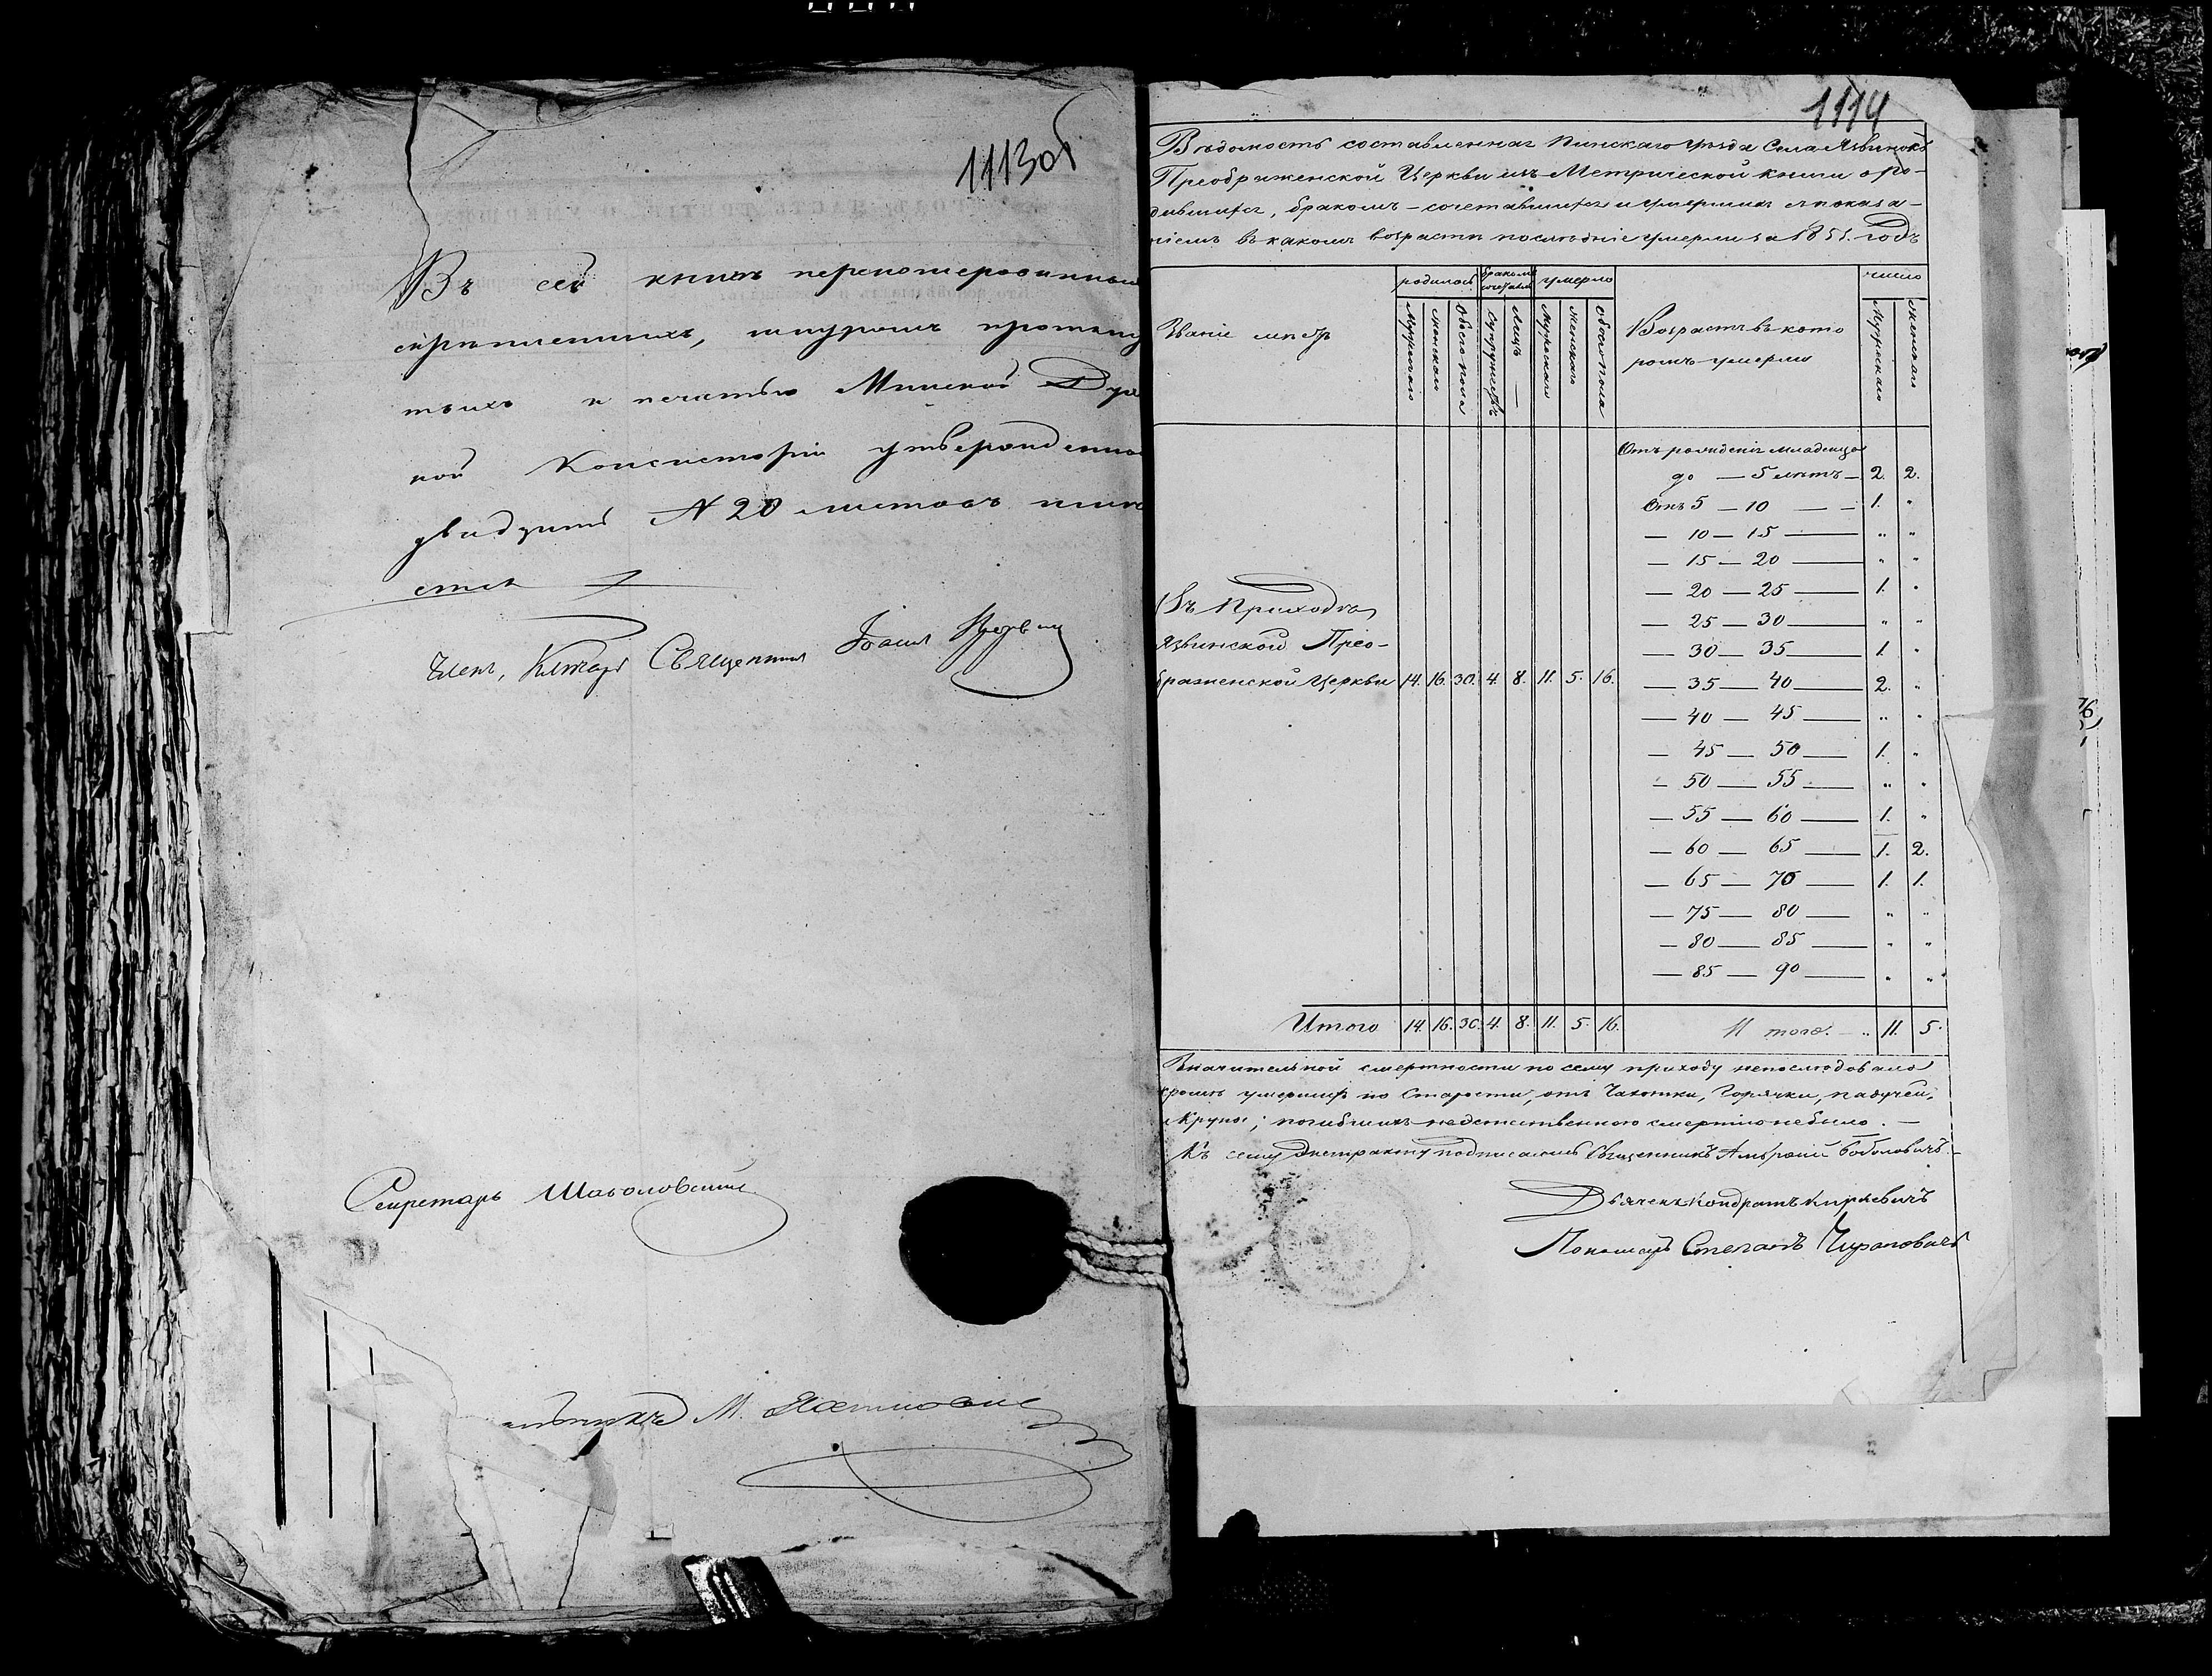 1113об
Въ сей книгѣ перенумерованных
скрѣпленныхъ, шнуромъ протяну
тыхъ и печатью Минской Духо
ной Консисторіи утвержденно
двадцать N 20 листовъ
Членъ, Ключарь Священникъ Іоаннъ
Секретарь
М.
1114
Вѣдомость составленная Пинскаго уѣзда Села Язвинокъ
Преображенской Церкви изъ Метрической книги о ро-
дившихся, бракомъ-сочетавшихся и умершихъ съ показа-
ніемъ въ какомъ возрасти послѣдніе умерли за 1851. годъ
Званіе мѣстъ
родилось
Мужескаго
женскаго
Обоего пола
бракомъ сочетались
Супружествъ
Лицъ
умерло
Мужескаго
женскаго
обоего пола
Возрастъ въ кото
ромъ умерли
число
Мужескаго
женскаго
Отъ рожденія младенцовъ
до — 5 лѣтъ — 2. 2.
Отъ 5 — 10 — — 1. "
— 10 — 15 — " "
— 15 — 20 — " "
— 20 — 25 — 1. "
— 25 — 30 — " "
— 30 — 35 — 1. "
— 35 — 40 — 2. "
— 40 — 45 — " "
— 45 — 50 — 1. "
— 50 — 55 — " "
— 55 — 60 — 1. "
— 60 — 65 — 1. 2.
— 65 — 70 — 1. 1.
— 75 — 80 — " "
— 80 — 85 — " "
— 85 — 90 — " "
Въ Приходѣ
Язвинской Прео-
браженской Церкви 14. 16. 30. 4. 8. 11. 5. 16.
Итого 14. 16. 30. 4. 8. 11. 5. 16. Итого. — " 11. 5.
Значительной смертности по сему приходу непослѣдовало
кромѣ умершихъ по Старости, отъ Чахотки, Горячки, падучей,
Крупы; погибшихъ неестественною смертію небыло. —
Къ сему Экстракту подписались Священникъ Боболовичъ. —
Дьячекъ Кондратъ Киркевичъ
Пономарь Степанъ